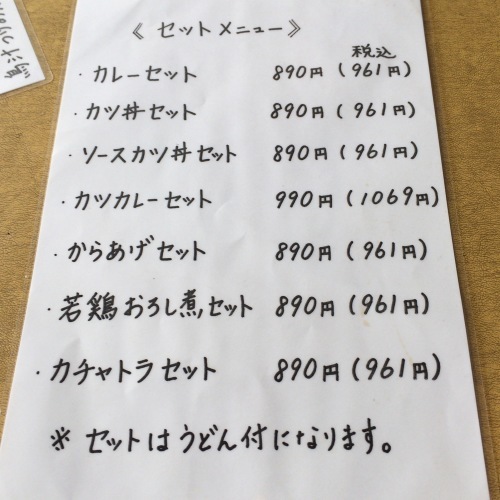 《 セットメニュー 》
税込
・カレーセット 890円 (961円)
・カツ丼セット 890円 (961円)
・ソースカツ丼セット 890円 (961円)
・カツカレーセット 990円 (1069円)
・からあげセット 890円 (961円)
・若鶏おろし煮セット 890円 (961円)
・カチャトラセット 890円 (961円)
※ セットはうどん付になります。